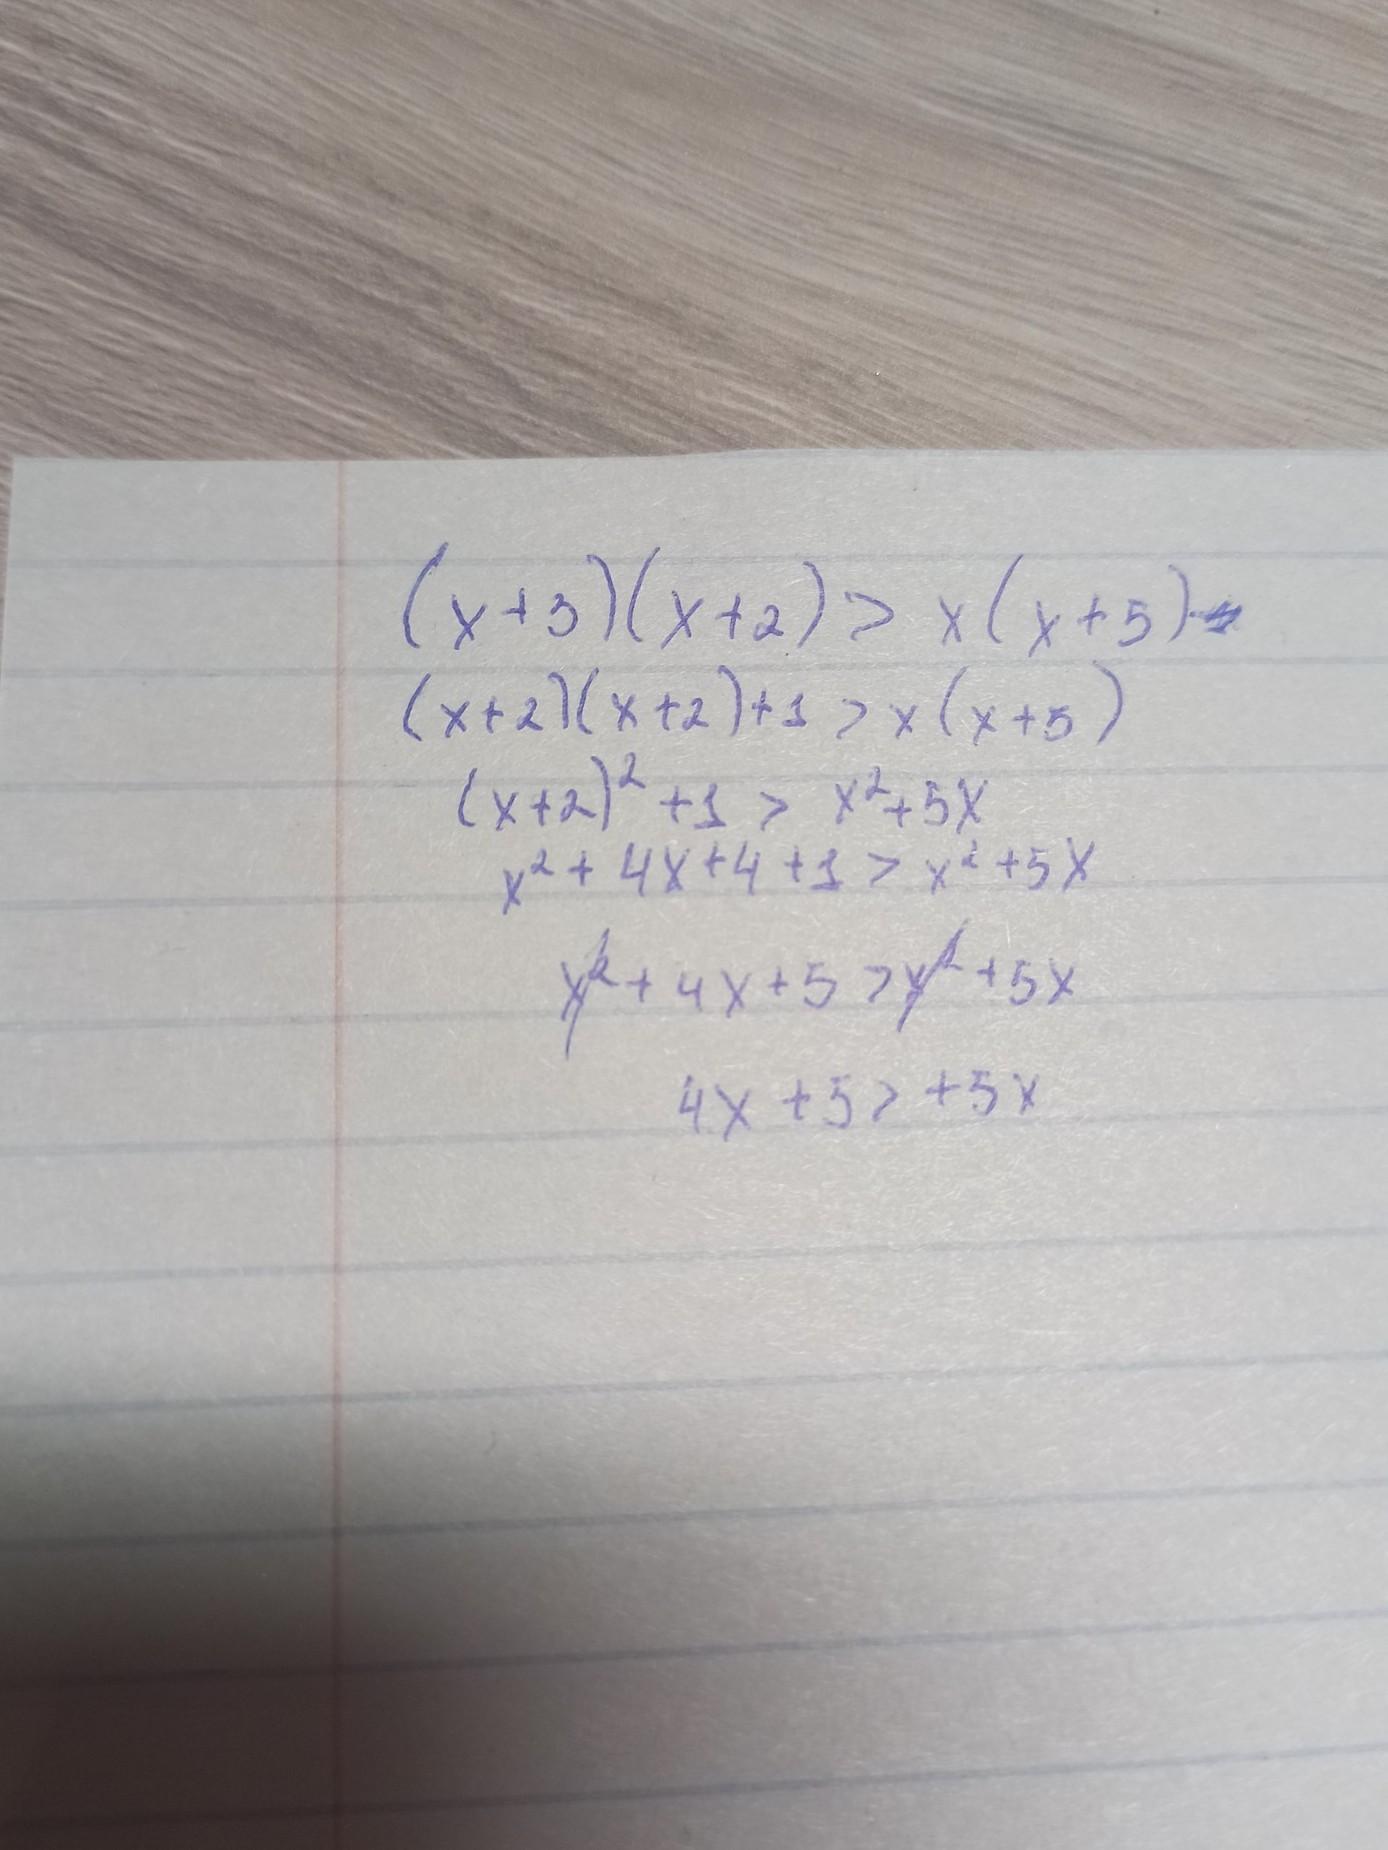 (x+3)(x+2) > x(x+5)
(x+2)(x+2)+1 > x(x+5)
(x+2)² +1 > x²+5x
x² + 4x+4 +1 > x² +5x
x² + 4x +5 > x² +5x
4x +5 > +5x